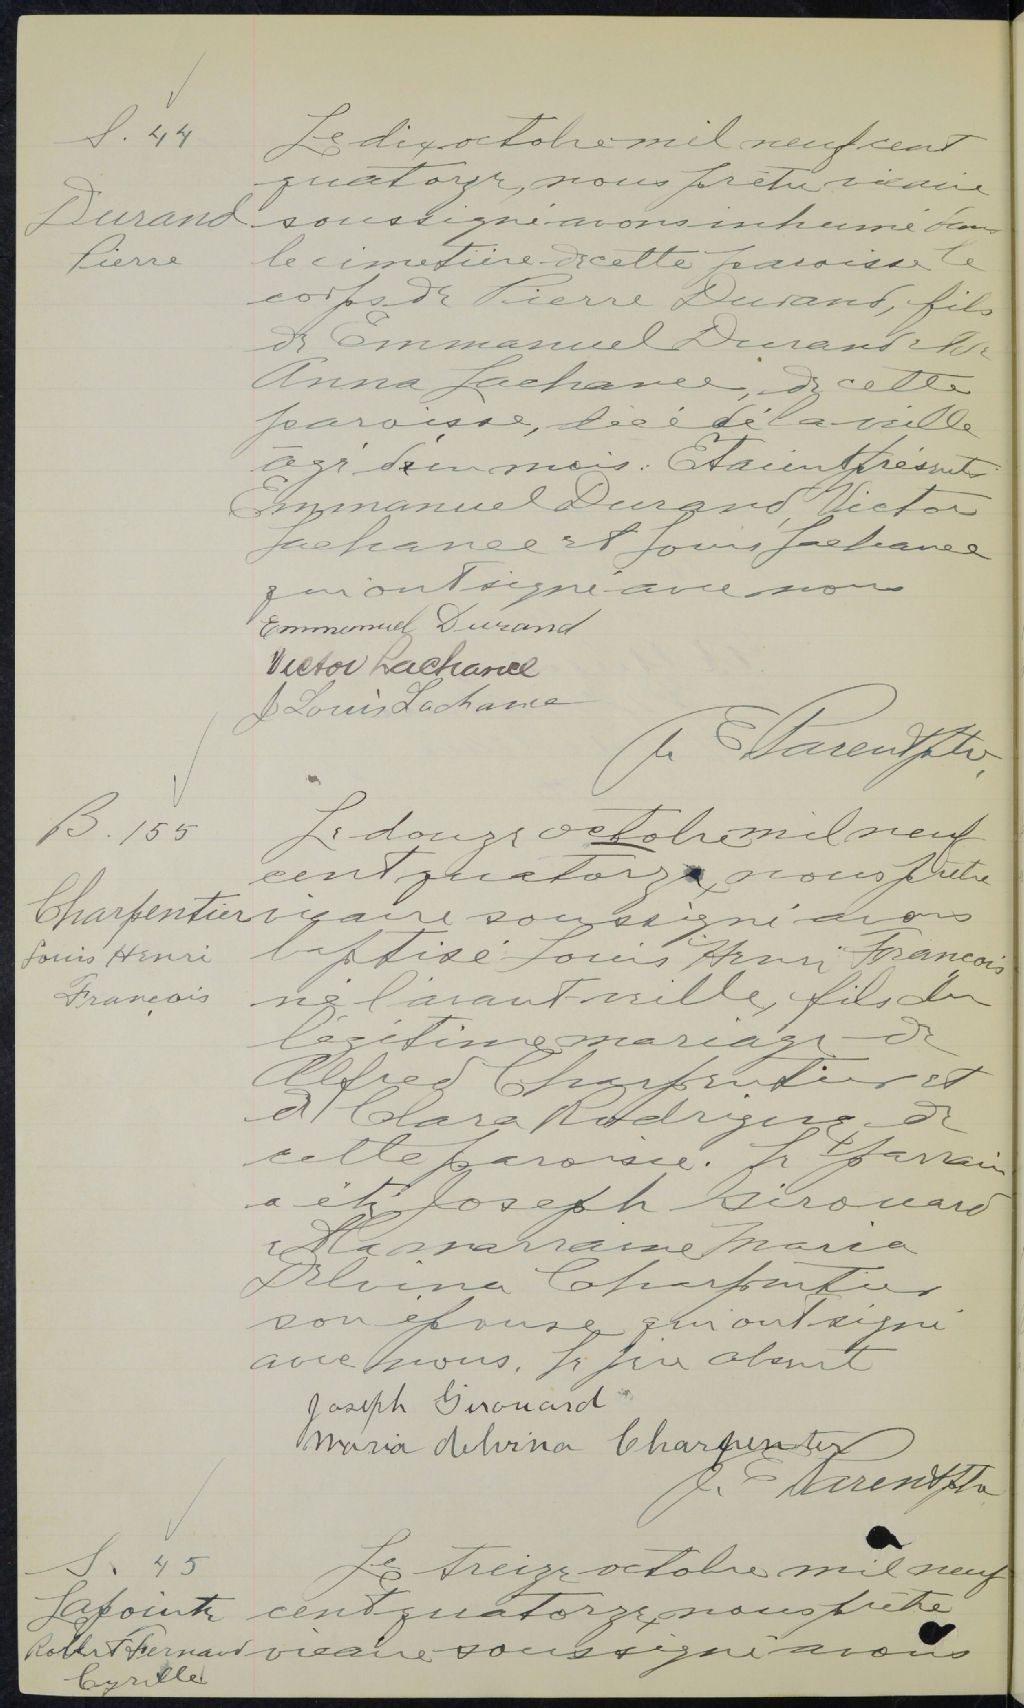 S. 44
Durand
Pierre
Le dix octobre mil neuf cent
quatorze, nous prêtre vicaire
soussigné avons inhumé dans
le cimetière de cette paroisse le
corps de Pierre Durand, fils
de Emmanuel Durand et de
Anna Lachance, de cette
paroisse, décédé la veille
âgé d'un mois. Etaient présents
Emmanuel Durand, Victor
Lachance et Louis Lachance
qui ont signé avec nous
Emmanuel Durand
Victor Lachance
J Louis Lachance
J. E Parent Ptr.
B. 155
Charpentier
Louis Henri
François
Le douze octobre mil neuf
cent quatorze, nous prêtre
vicaire soussigné avons
baptisé Louis Henri François
né l'avant veille, fils du
légitime mariage de
Alfred Charpentier et
de Clara Rodrigue de
cette paroisse. Le parrain
a été Joseph Girouard
et la marraine Maria
Delvina Charpentier
son épouse qui ont signé
avec nous. Le père absent
Joseph Girouard
Maria delvina Charpentier
J. E Parent Ptr
S. 45
Lapointe
Robert Fernand
Cyrille
Le treize octobre mil neuf
cent quatorze, nous prêtre
vicaire soussigné avons